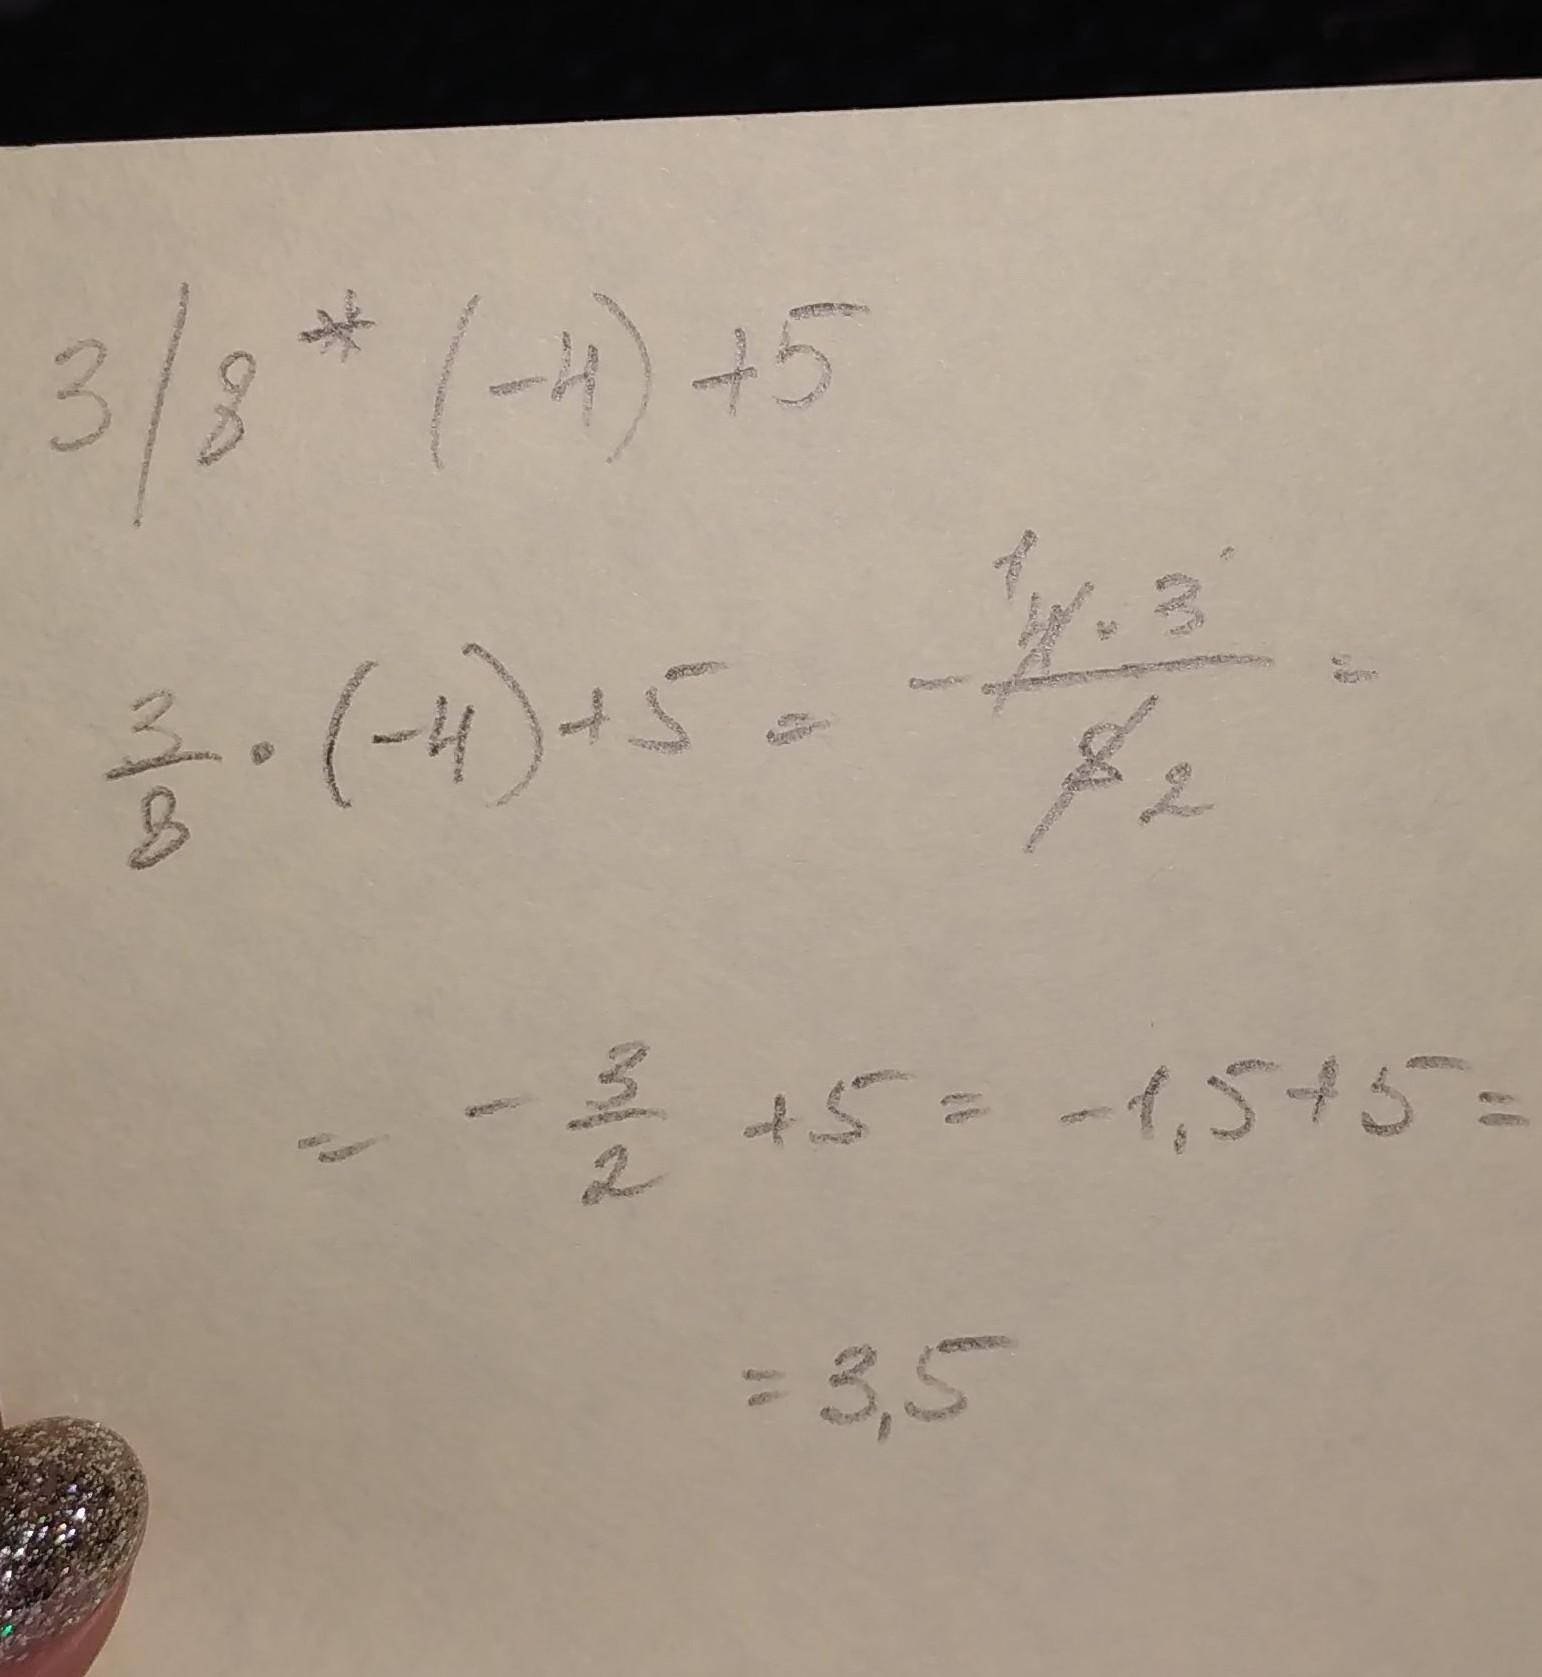 3/8 * (-4) + 5
3/8 · (-4) + 5 = - 1 4 · 3 / 8 2 =
= - 3/2 + 5 = -1,5 + 5 =
= 3,5